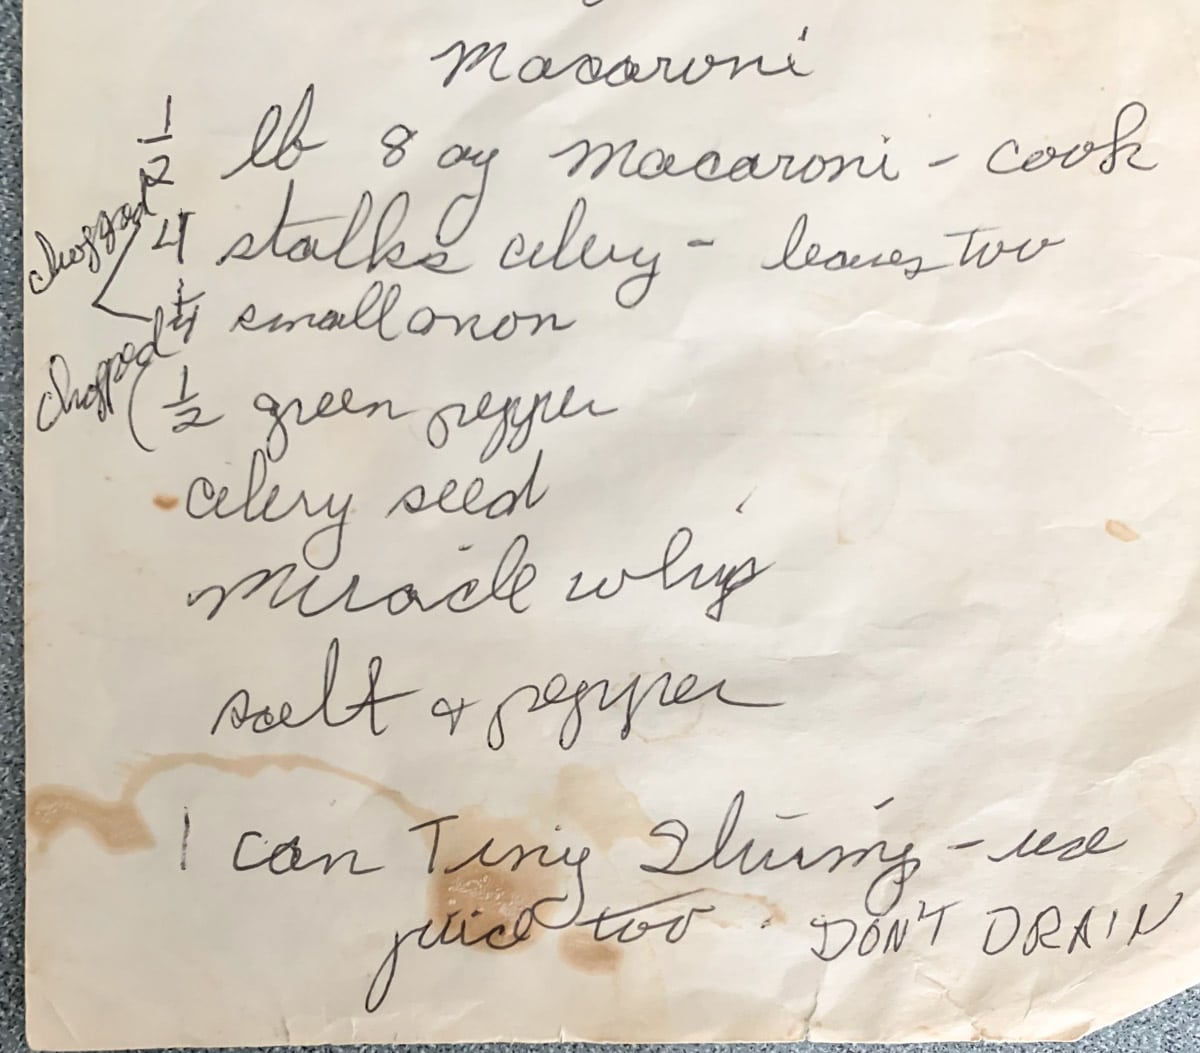 Macaroni
1/2 lb 8 oz macaroni - cook
chopped 4 stalks celery - leaves too
1/4 small onon
chopped ( 1/2 green pepper
celery seed
Miracle whip
salt & pepper
1 can Tiny Shrimp - use
juice too. DON'T DRAIN